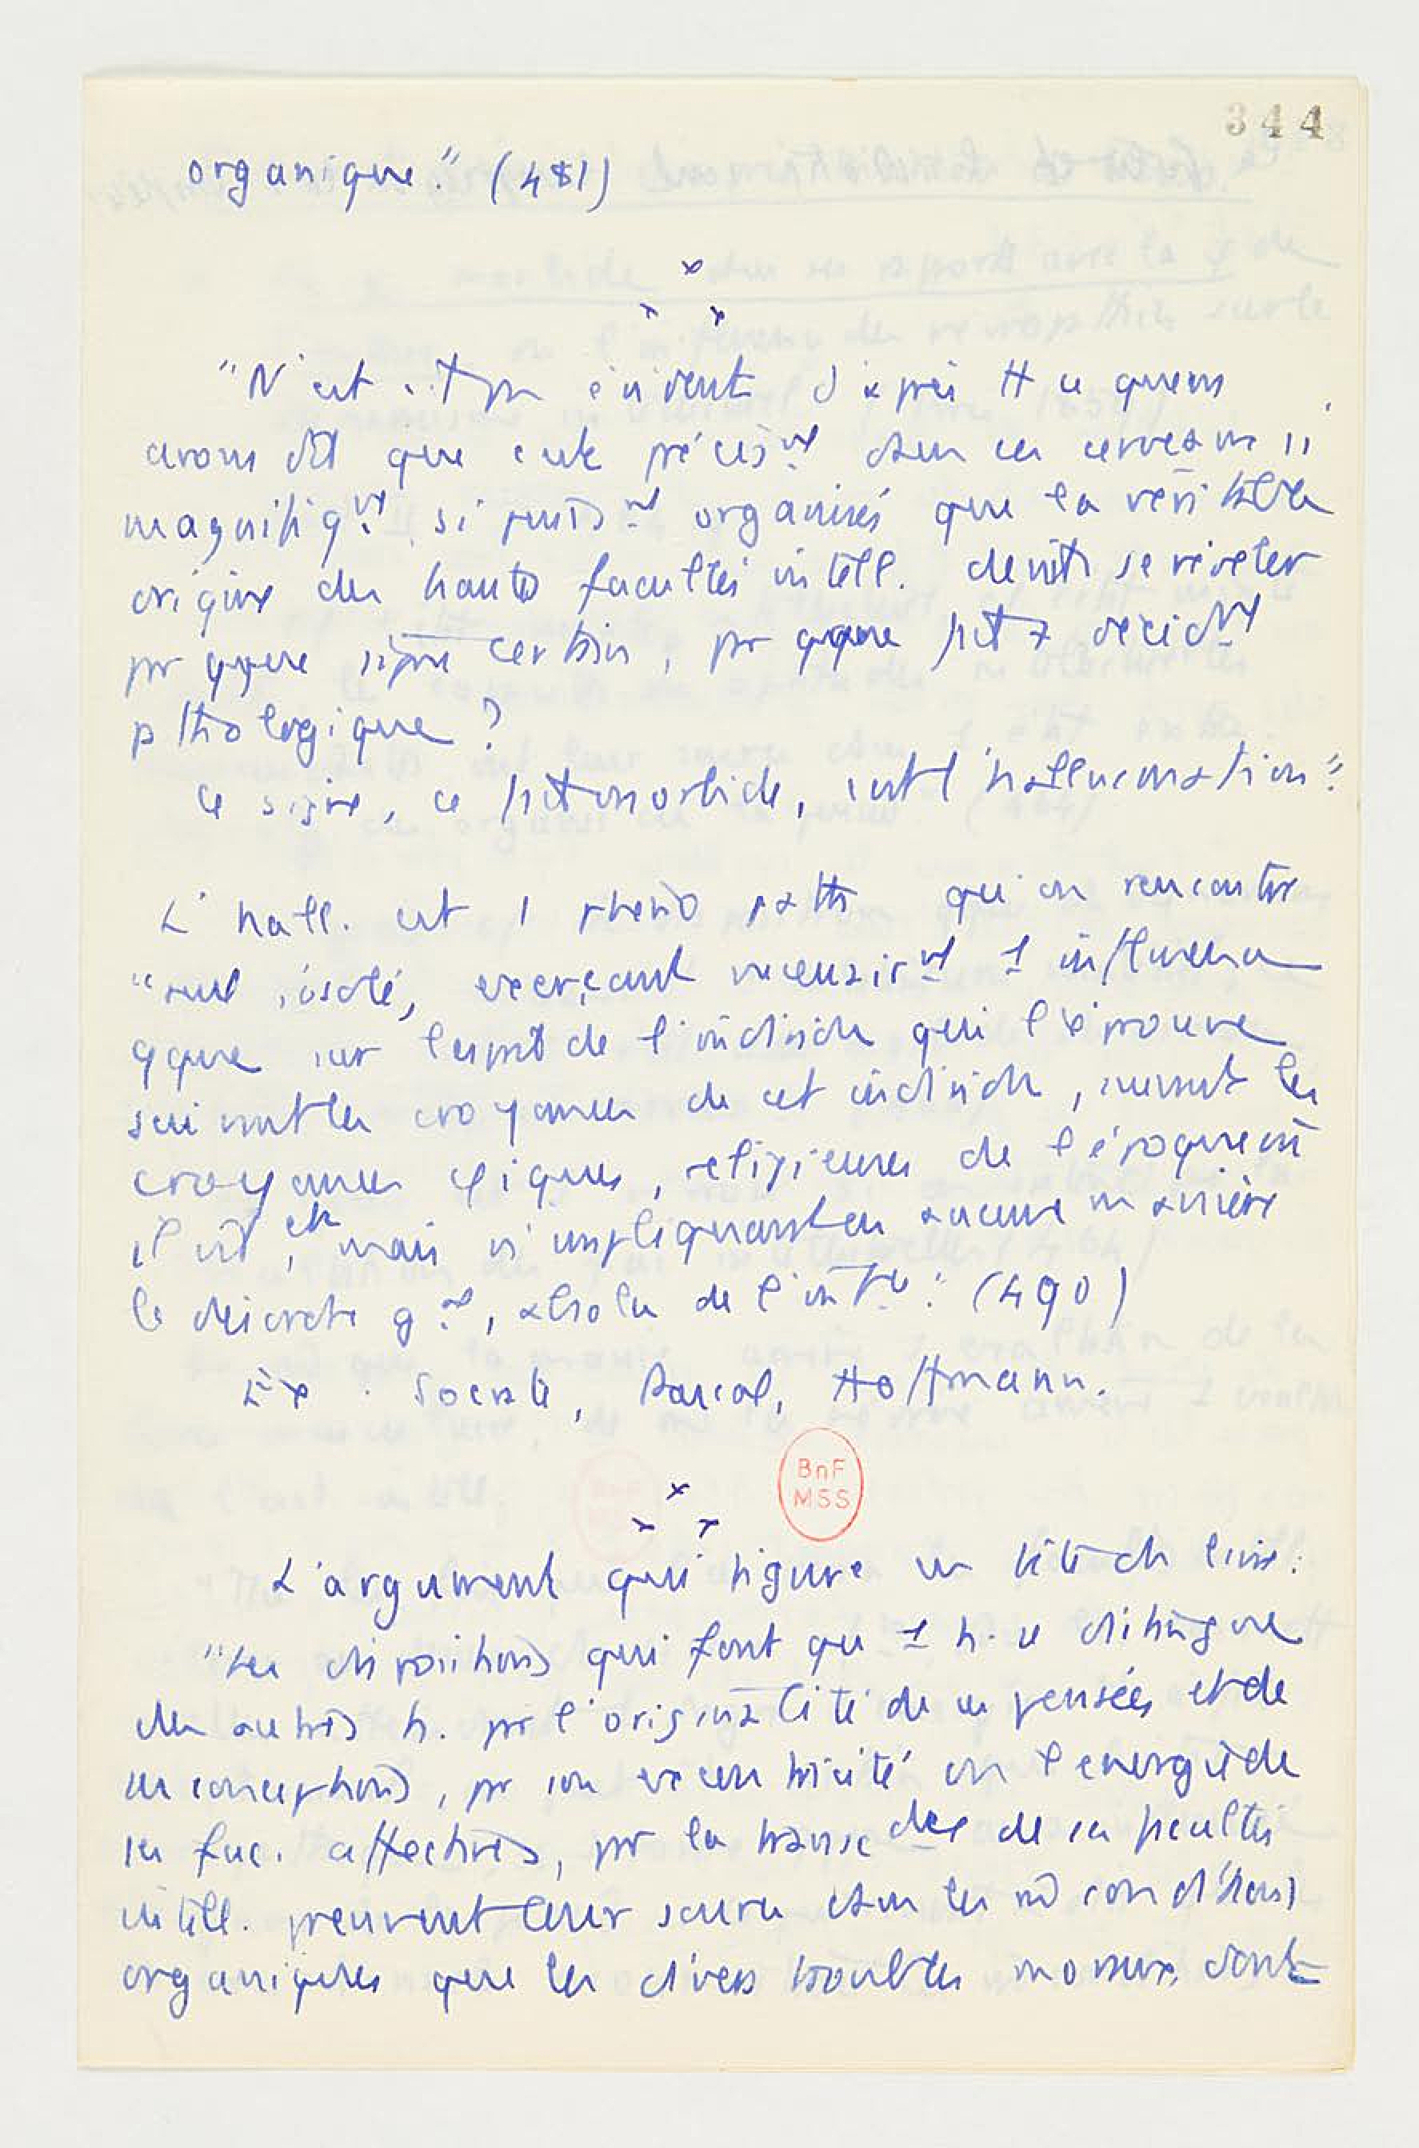 344
organique." (481)
x
x x
"N'est-il pas évident d'après tt ce que ns
avons dit que c'est précis.nt dans ces cerveaux si
magnifiq.nt si puis.nt organisés que la véritable
origine des hautes facultés intell. devait se révéler
pr qque signe certain, pr qque fait décid.nt
pathologique ?
Ce signe, ce fait morbide, c'est l'hallucination"
L'hall. est 1 phéno path qu'on rencontre
"seul isolé, exerçant nécessair.nt 1 influence
qque sur l'esprit de l'individu qui l'éprouve
suivant les croyances de cet individu, suivant les
croyances φiques, religieuses de l'époque où
il vit, etc mais n'impliquant en aucune manière
le désordre g.al, absolu de l'int.ce" (490)
Ex : Socrate, Pascal, Hoffmann.
BnF
MSS
x
x x
L'argument qui figure en tête du livre :
"Les dispositions qui font qu'1 h. se distingue
des autres h. pr l'originalité de ses pensées et de
ses conceptions, pr son excentricité ou l'énergie de
ses fac. affectives, pr la transc dce de ses facultés
intell. prennent leur source dans les m̂ conditions
organiques que les divers troubles moraux dont